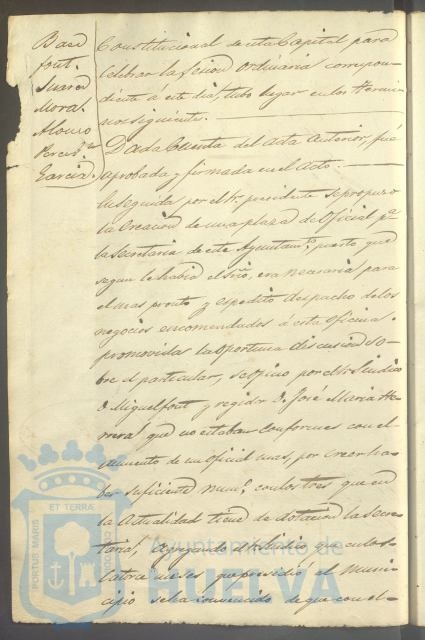 Baed
font.
Suarez
Moral.
Alonso
Garcia.
Constitucional de esta Capital para
celebrar la Sesion ordinaria correspon-
diente á este dia, tubo lugar en los termi-
nos siguientes.
Dada Cuenta del acta anterior, fué
aprobada y firmada en el acto.
En seguida por el Sr. presidente se propuso
la Creacion de una plaza de Oficial pa.
la Secretaria de este Ayuntamo., puesto que
segun le habia el Srio, era necesaria para
el mas pronto y espedito despacho de los
negocios encomendados á esta oficina.
promovida la oportuna discusion so-
bre el particular, se opinó por el Sr. Sindico
D. Miguel font y regidor D. José Maria He-
rrera que no estaban conformes con el
aumento de un oficial mas, por creer ha-
ber suficiente numo. con los tres que en
la actualidad tiene de dotacion la Secre-
taria, agregando el Sindico que en los
catorce meses que presidió el Muni-
cipio se ha convencido de que con el-
PORTUS MARIS ET TERRAE CUSTODIA
Ayuntamiento de
HUELVA